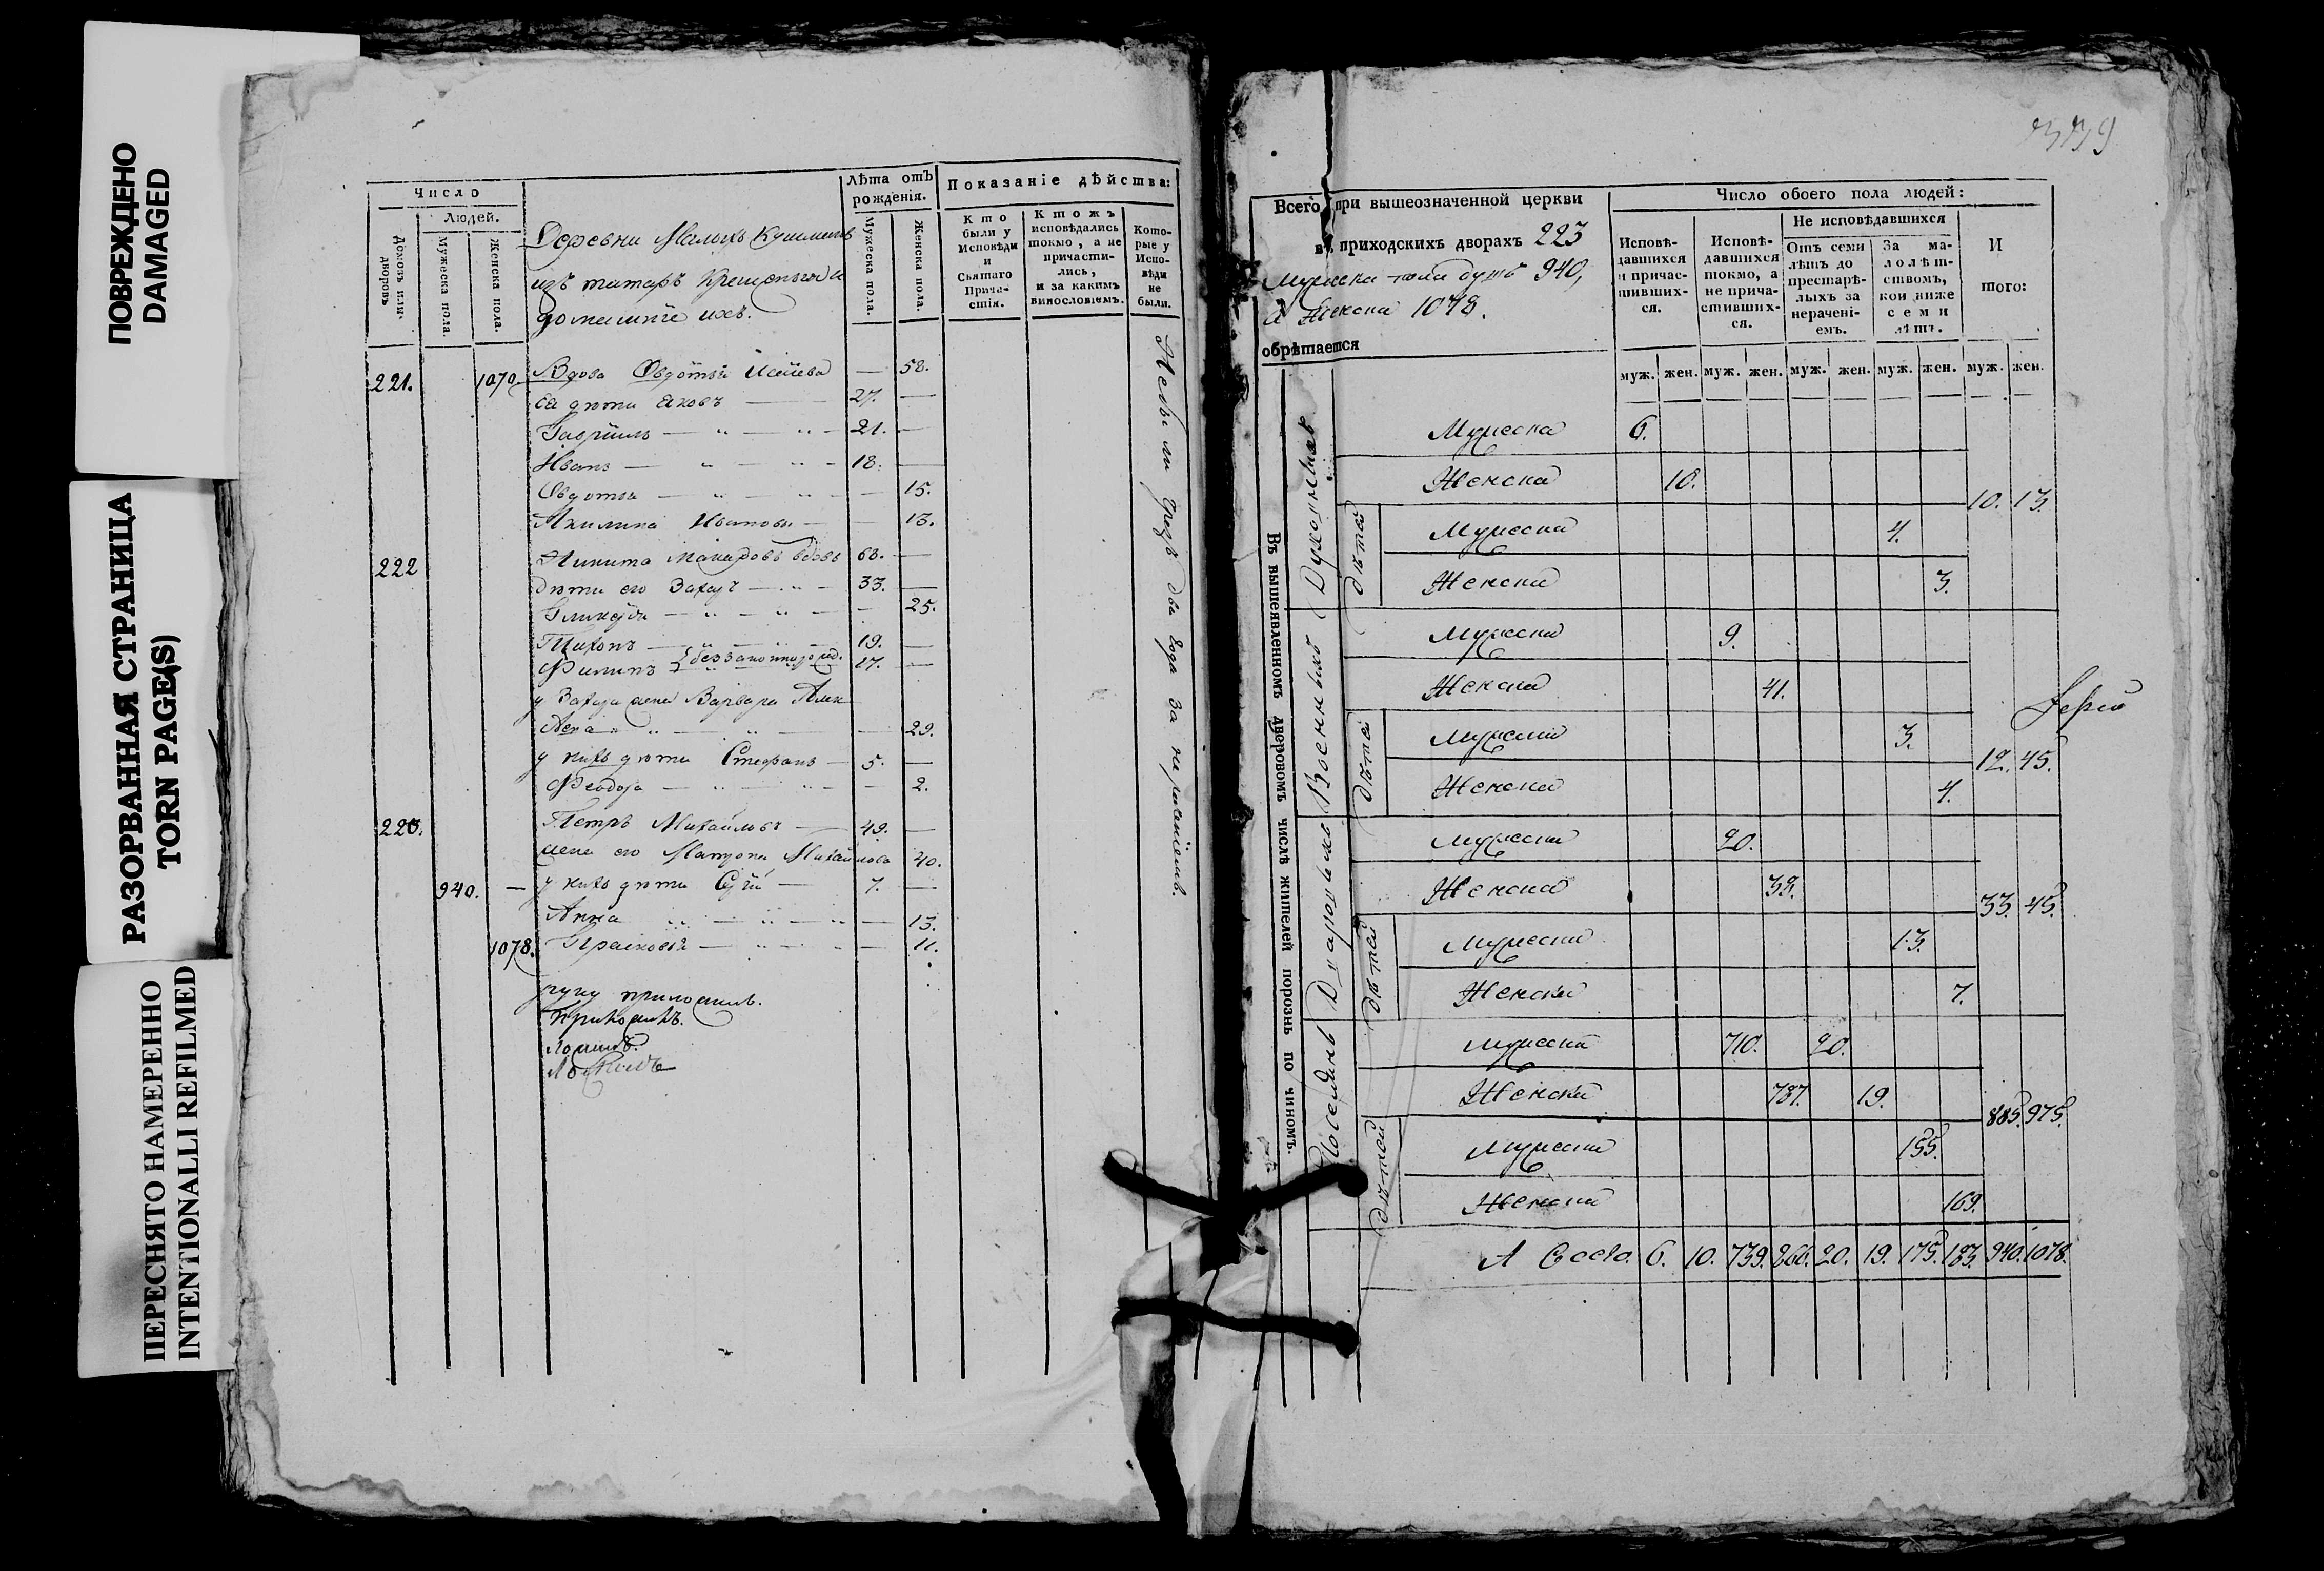 ПОВРЕЖДЕНО
DAMAGED
РАЗОРВАННАЯ СТРАНИЦА
TORN PAGE(S)
ПЕРЕСНЯТО НАМЕРЕННО
INTENTIONALLI REFILMED
Число
Людей.
Домовъ или дворовъ
Мужеска пола.
Женска пола.
Деревни Малыхъ
изъ татаръ крещеныя и
домашніе ихъ.
Лѣта отъ рожденія.
Мужеска пола.
Женска пола.
Показаніе дѣйства:
Кто были у Исповѣди и Святаго Причастія.
Ктожъ исповѣдались токмо, а не причастились, и за какимъ винословіемъ.
Которые у Исповѣди не были.
221. 1070. Вдова Овдотья — 58.
Ея дѣти Яковъ — 27. —
Гавріилъ — 21. —
Иванъ — 18. —
Овдотья — — 15.
Акилина Иванова — — 13.
222 Никита Макаровъ вдовъ 63. —
дѣти его Захаръ — 33. —
Гликерія — — 25.
Тихонъ — 19. —
Филипъ 17. —
у Захара жена Варвара
— 29.
у нихъ дѣти Стефанъ — 5. —
Феодора — — 2.
223. Петръ Михайловъ — 49. —
жена его Матрона Михайлова 40.
940. — у нихъ дѣти — 7. —
Анна — — 13.
1078. Прасковья — — 11.
руку приложилъ.
Не были чрезъ два года за нераченіемъ.
Всего при вышеозначенной церкви
въ приходскихъ дворахъ 223
Мужеска пола душъ 940,
а Женска 1078.
обрѣтается
Число обоего пола людей:
Исповѣдавшихся и причастившихся.
Исповѣдавшихся токмо, а не причастившихся.
Не исповѣдавшихся
Отъ семи лѣтъ до престарѣлыхъ за нераченіемъ.
За малолѣтствомъ, кои ниже семи лѣтъ.
Итого:
муж. жен. муж. жен. муж. жен. муж. жен. муж. жен.
Въ вышеявленномъ дворовомъ числѣ жителей порознь по чиномъ.
Духовныхъ
Мужеска 6.
Женска 10.
10. 13.
Дѣтей
Мужеска 4.
Женска 3.
Военныхъ
Мужеска 9.
Женска 41.
12. 45.
Дѣтей
Мужеска 3.
Женска 4.
Дворовыхъ
Мужеска 20.
Женска 38.
33. 45.
Дѣтей
Мужеска 13.
Женска 7.
Поселянъ
Мужеска 710. 20.
Женска 787. 19.
885. 975.
Дѣтей
Мужеска 155.
Женска 169.
А Всего. 6. 10. 739. 866. 20. 19. 175. 183. 940. 1078.